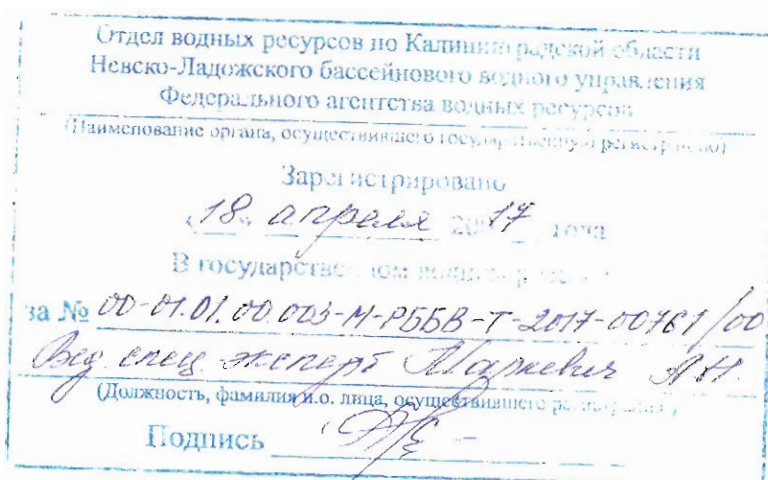 Отдел водных ресурсов по Калининградской области
Невско-Ладожского бассейнового водного управления
Федерального агентства водных ресурсов
(Наименование органа, осуществившего государственную регистрацию)
Зарегистрировано
«18» апреля 2017 года
В государственном водном реестре
за № 00-01.01.00.003-М-РББВ-Т-2017-00761/00
Вед. спец.-эксперт Маркевич А.Н.
(Должность, фамилия и.о. лица, осуществившего регистрацию)
Подпись